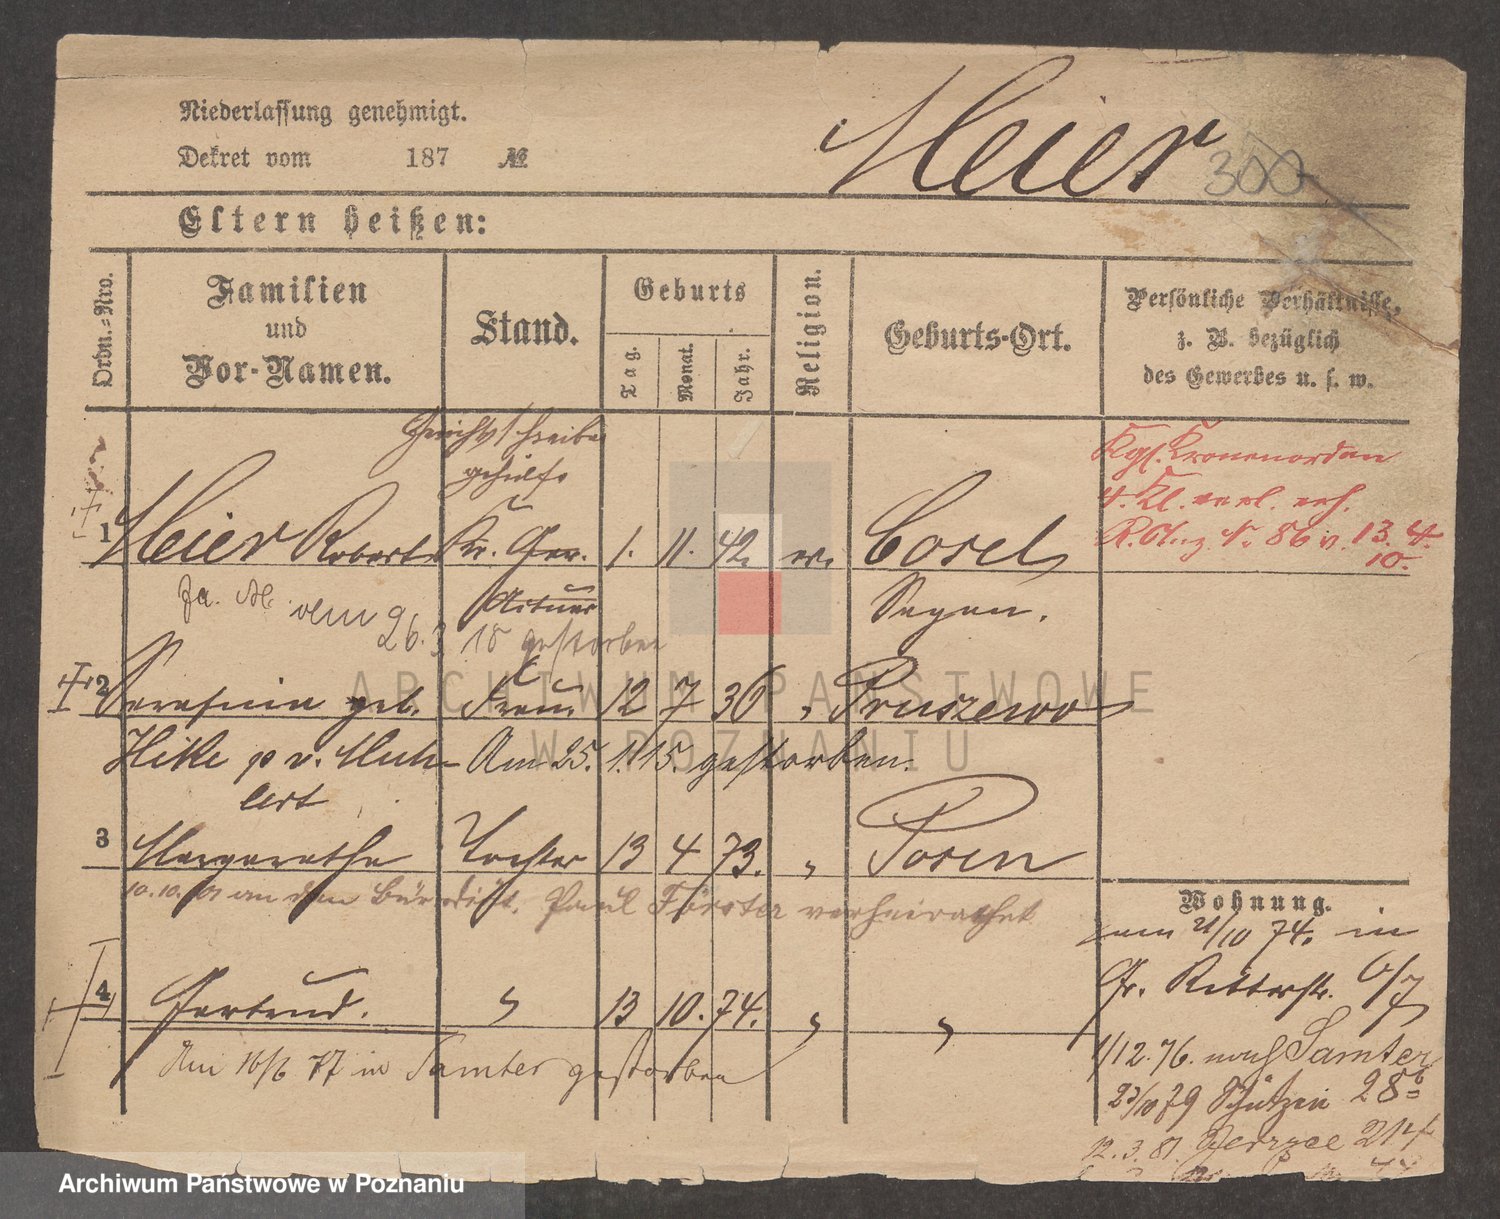 Niederlassung genehmigt.
Dekret vom 187 №
Meier 300
Eltern heißen:
Ordn.-Nro.
Familien
und
Vor-Namen.
Stand.
Geburts
Tag.
Monat.
Jahr.
Religion.
Geburts-Ort.
Persönliche Verhältnisse,
z. B. bezüglich
des Gewerbes u. s. w.
Gerichtsschreiber
gehülfe
1 Meier Robert Kr. Ger. 1. 11. 42. ev. Cosel
Aktuar
Sagan.
Kgl. Kronenorden
4. Kl. verl. erh.
13. 4.
10.
vom 26.3 18 gestorben
2 Serafina geb. Frau 12 7 36 " Pruszewo
Hilke p v.
Am 25. 1. 15. gestorben.
3 Margarethe Tochter 13 4 73. " Posen
10.10.01 an den Paul Förster verheirathet
4 Gertrud. " 13 10. 74. " "
Am 16/6 77 in Samter gestorben
Wohnung.
21/10 74. in
Gr. Ritterstr. 6/7
1/12. 76. nach Samter
23/10 79 Schützen 28b
12.3.81.
ARCHIWUM PAŃSTWOWE
W POZNANIU
Archiwum Państwowe w Poznaniu